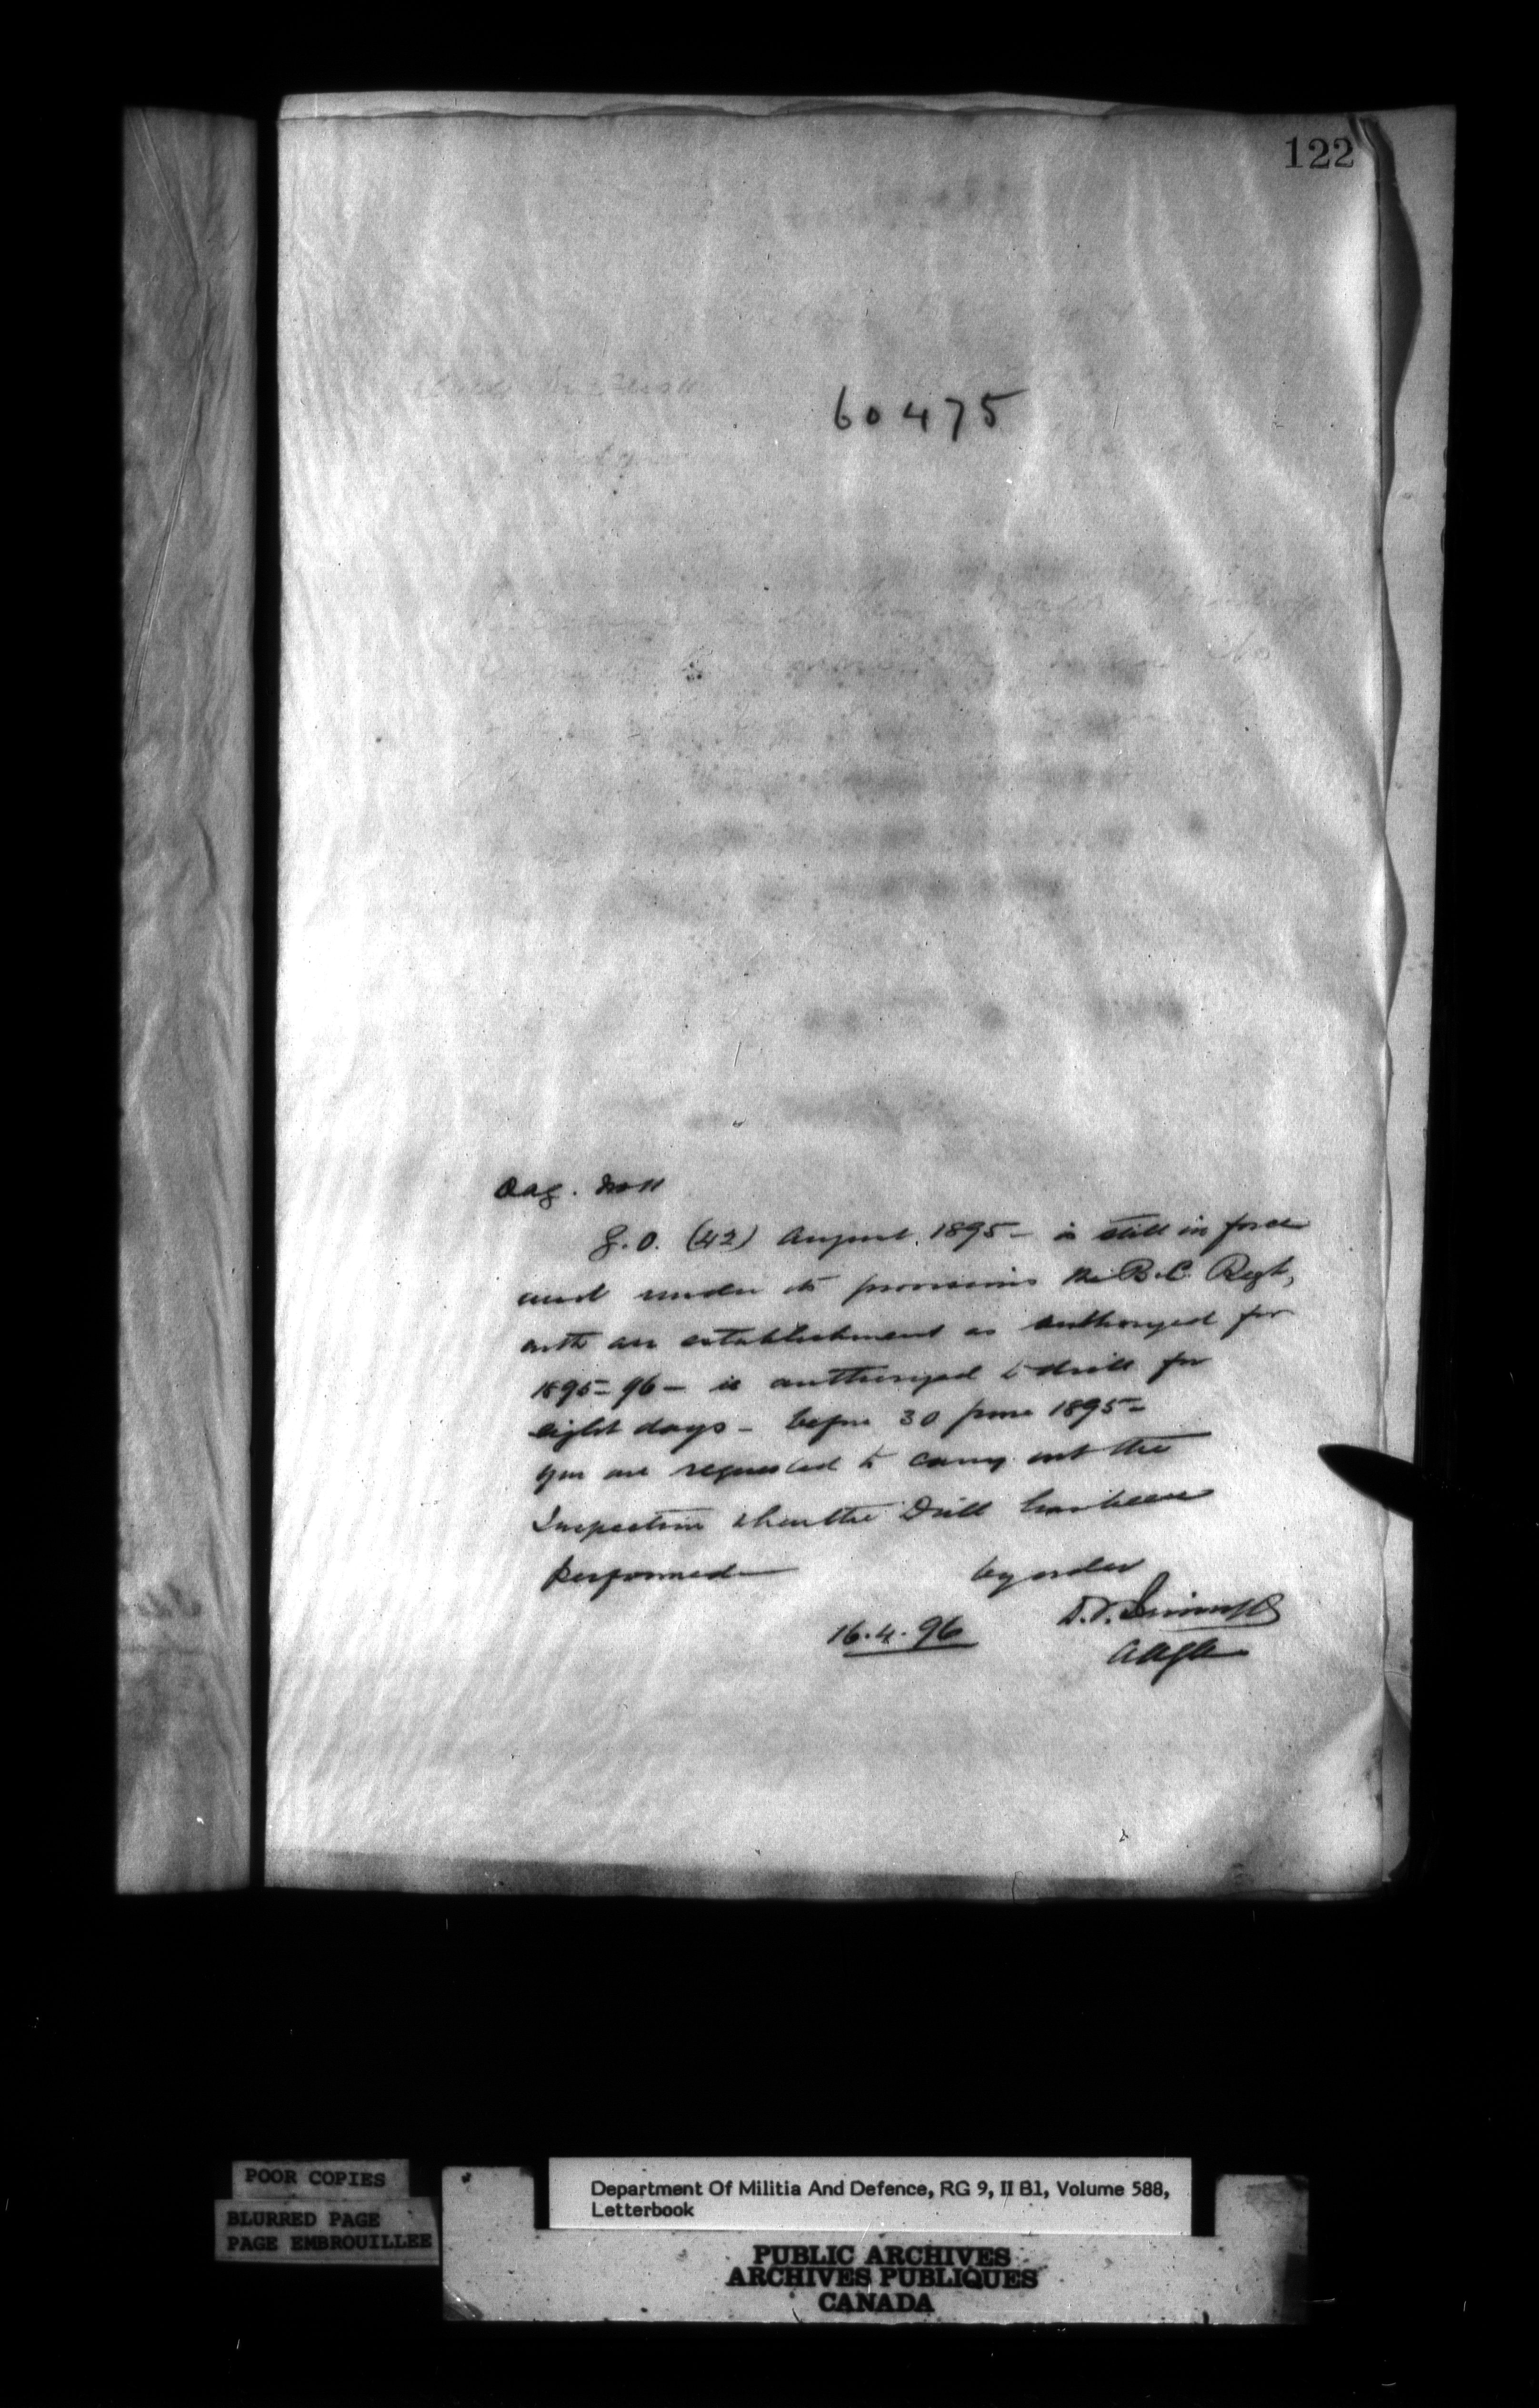 122
60475
DAG. No 11
G.O. (42) August 1895 - is still in force
and under its provisions the B.C. Regt,
with an establishment as authorized for
1895-96 - is authorized to drill for
eight days - before 30 June 1895 -
You are requested to carry out the
Inspection when the Drill has been
performed
by order
16.4.96
AAG
POOR COPIES
BLURRED PAGE
PAGE EMBROUILLEE
Department Of Militia And Defence, RG 9, II B1, Volume 588,
Letterbook
PUBLIC ARCHIVES
ARCHIVES PUBLIQUES
CANADA